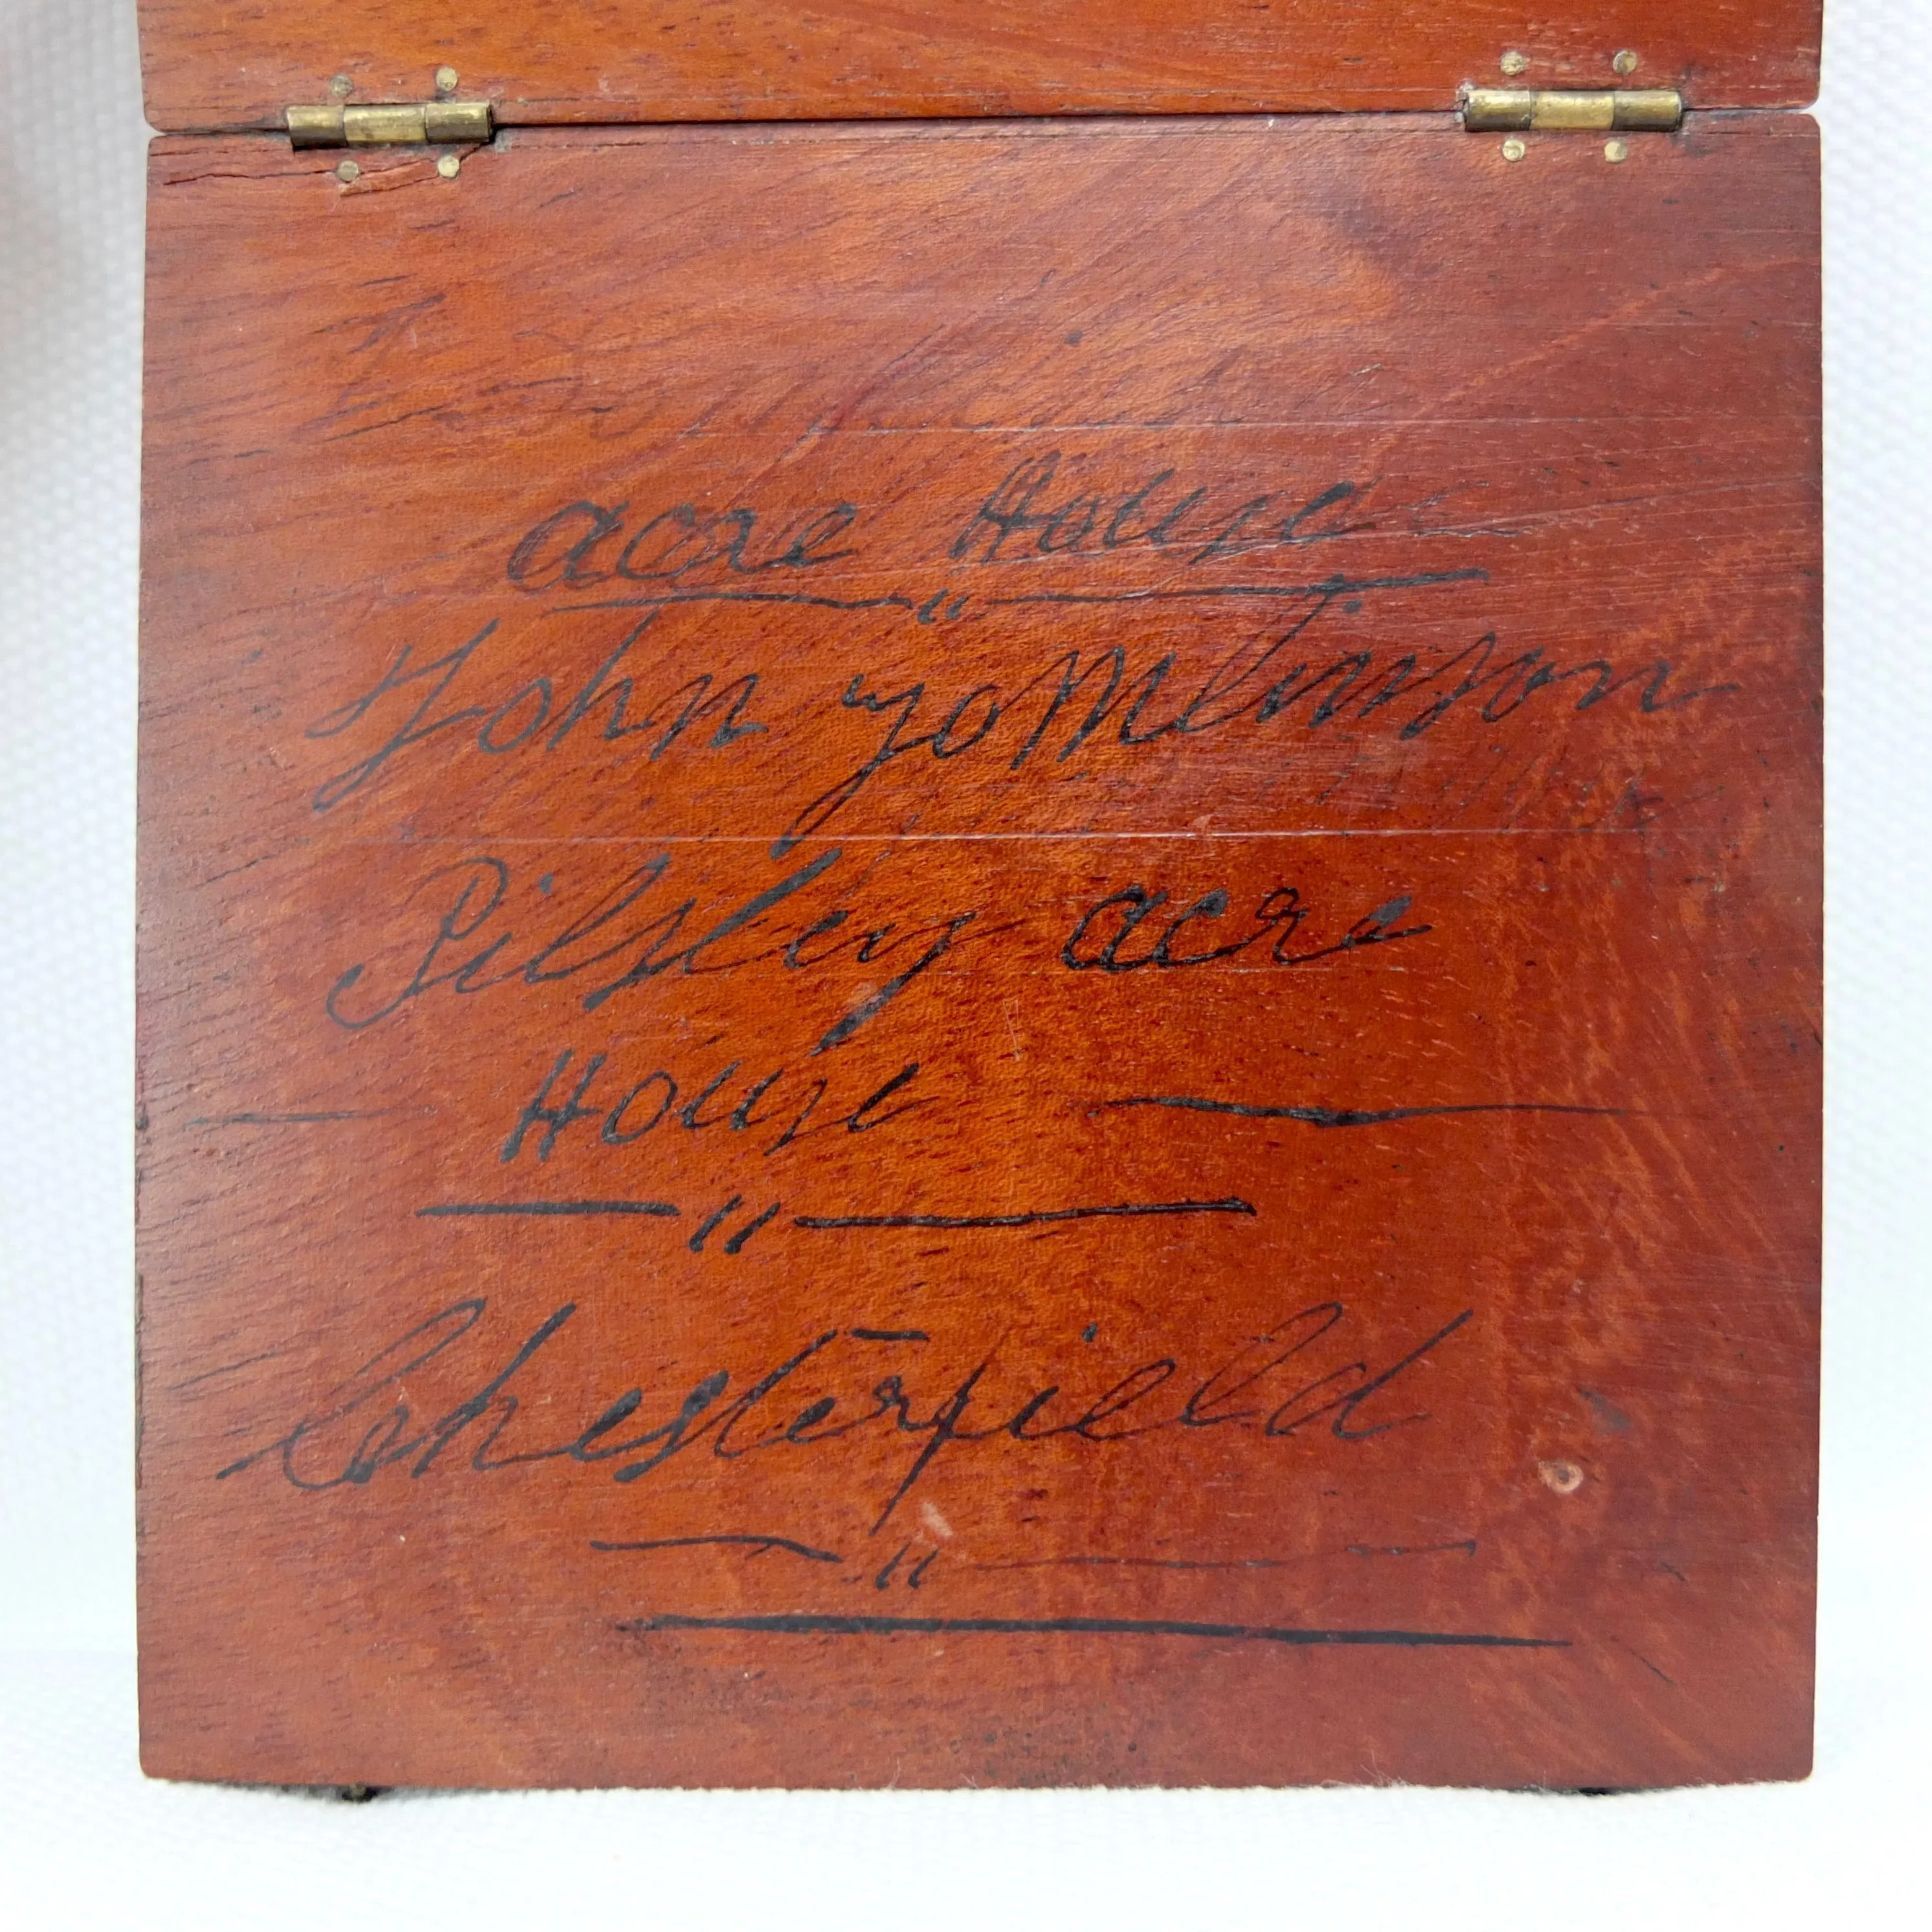 acre House
"
John Tomlinson
Pilsley acre
House
"
Chesterfield
"